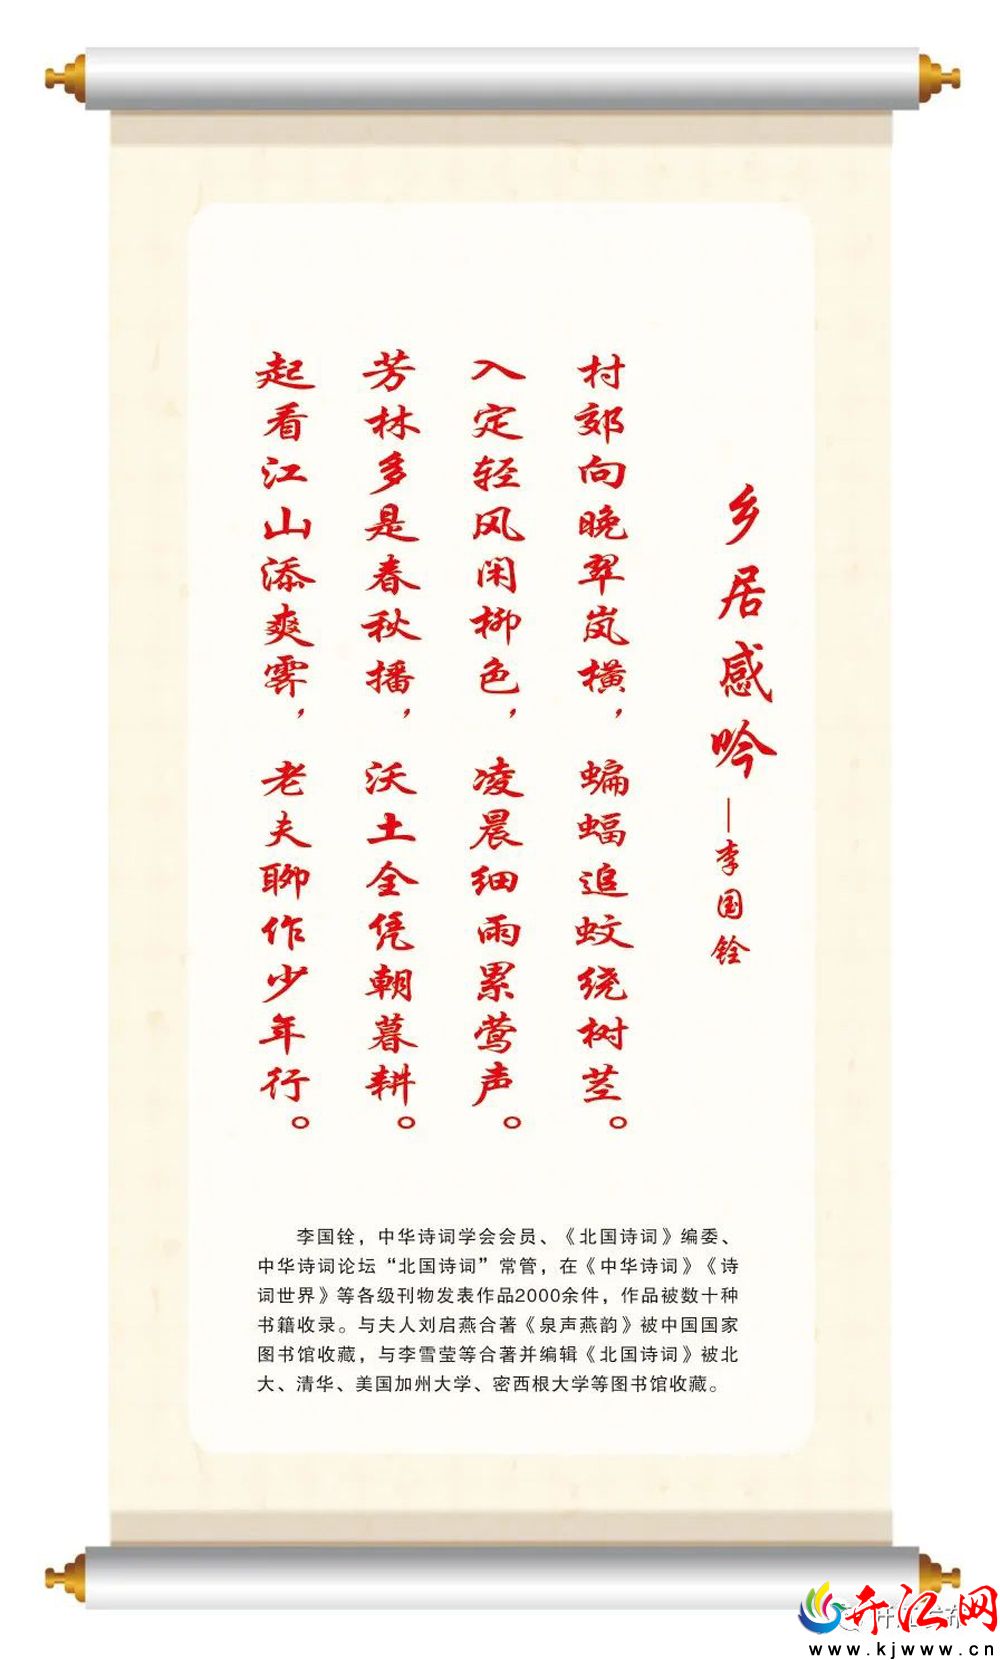 乡居感吟
—李国铨
村郊向晚翠岚横，蝙蝠追蚊绕树茎。
入定轻风闲柳色，凌晨细雨累莺声。
芳林多是春秋播，沃土全凭朝暮耕。
起看江山添爽霁，老夫聊作少年行。
李国铨，中华诗词学会会员、《北国诗词》编委、
中华诗词论坛“北国诗词”常管，在《中华诗词》《诗
词世界》等各级刊物发表作品2000余件，作品被数十种
书籍收录。与夫人刘启燕合著《泉声燕韵》被中国国家
图书馆收藏，与李雪莹等合著并编辑《北国诗词》被北
大、清华、美国加州大学、密西根大学等图书馆收藏。
开江网
www.kjwww.cn